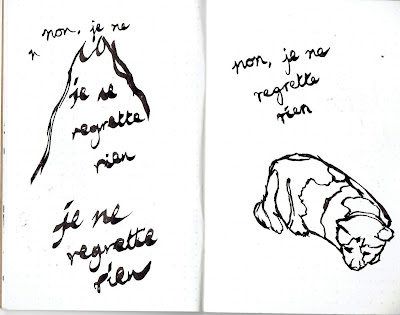 non, je ne
n
je ne
regrette
rien
je ne
regrette
rien
non, je ne
regrette
rien